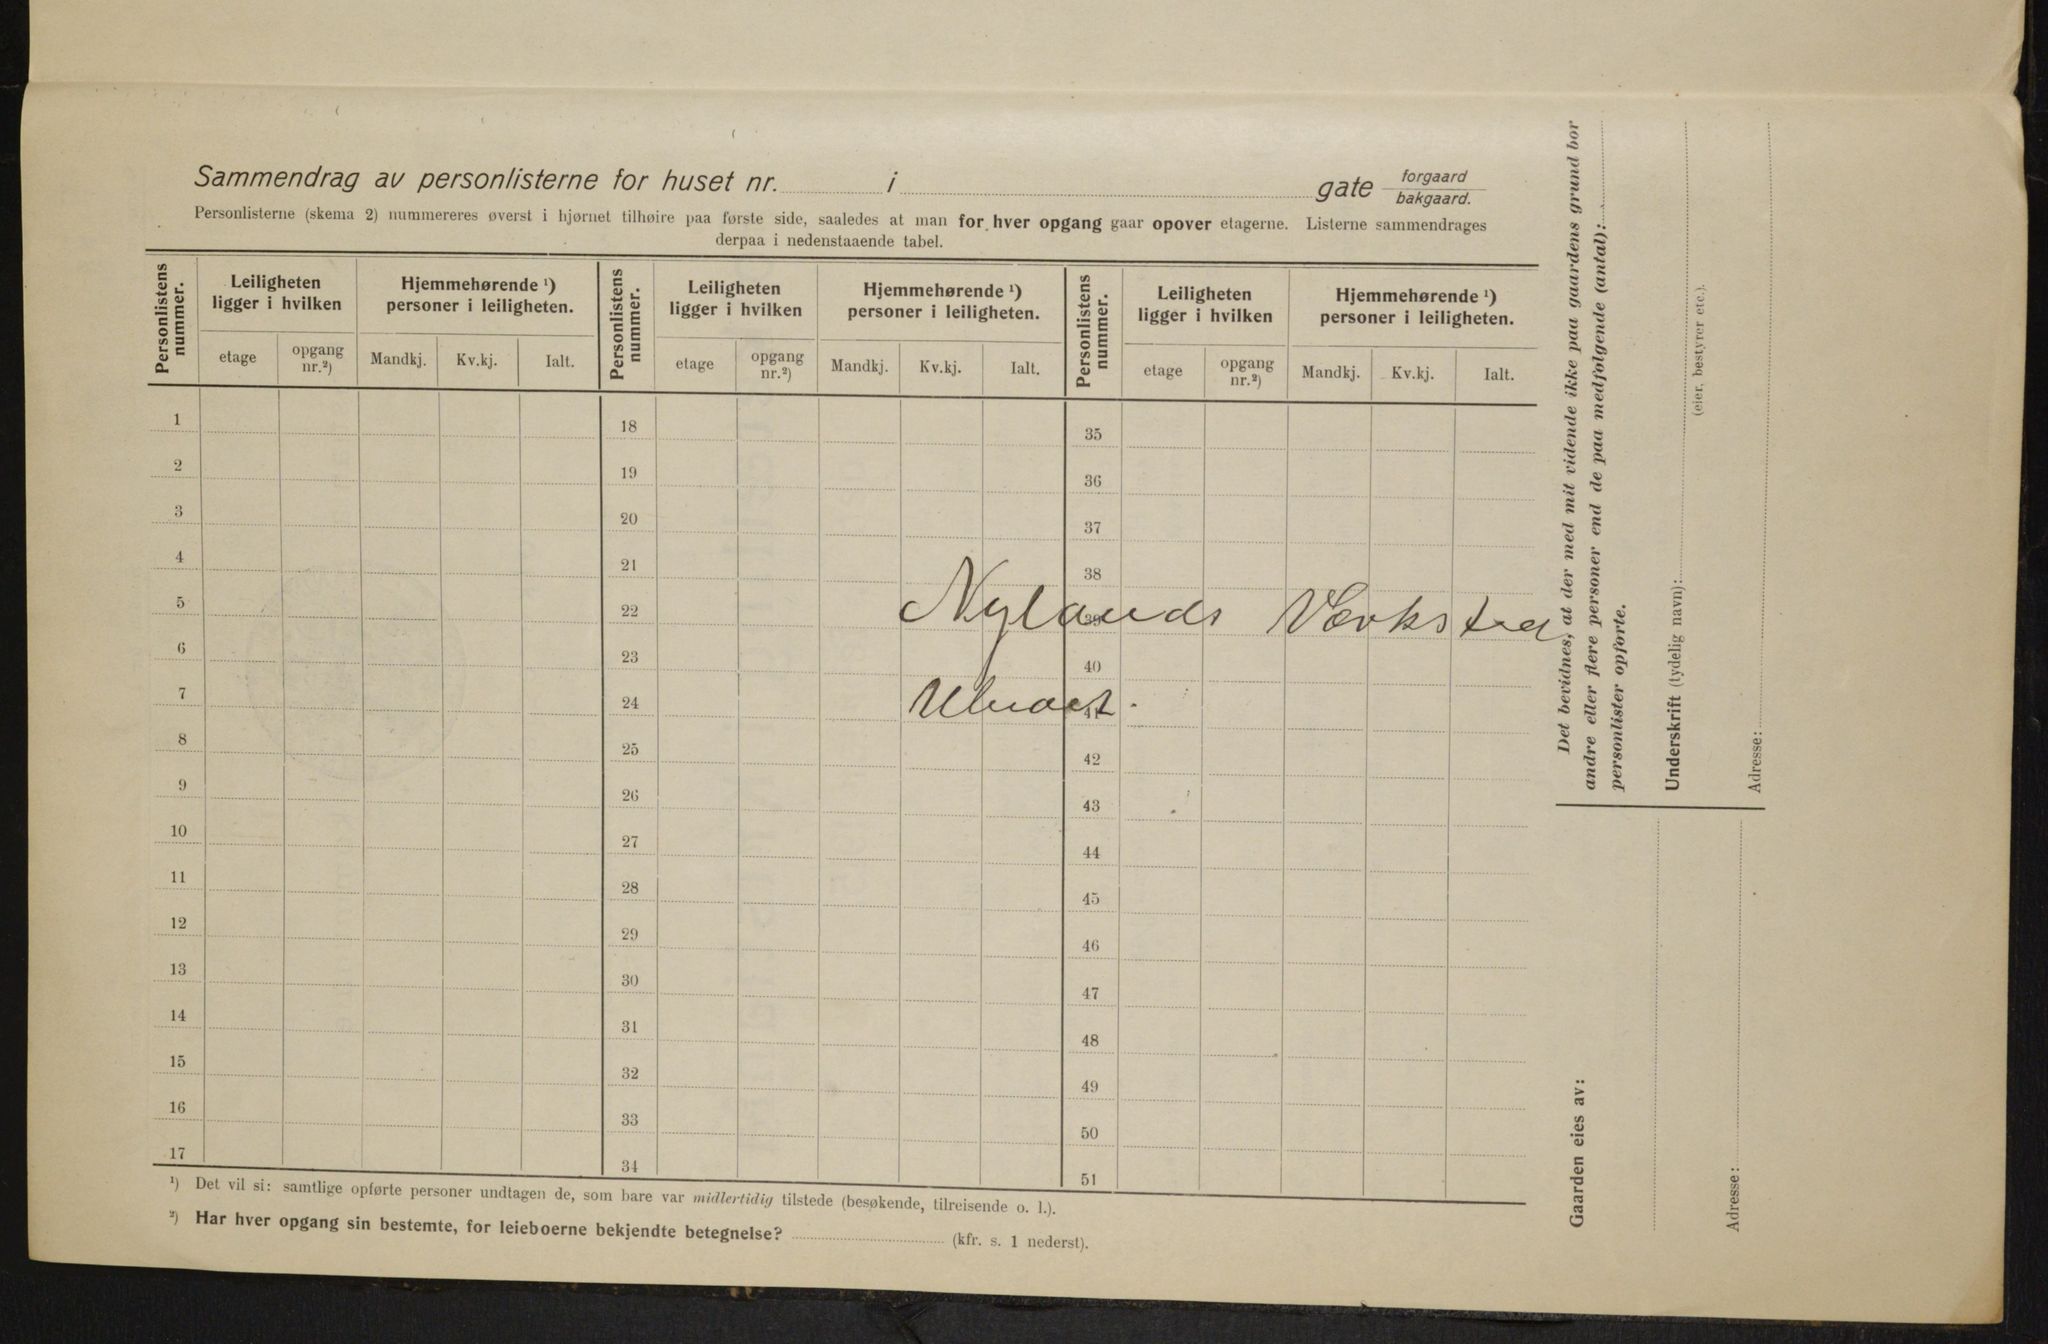 Sammendrag av personlisterne for huset nr. i gate forgaard
bakgaard.
Personlisterne (skema 2) nummereres øverst i hjørnet tilhøire paa første side, saaledes at man for hver opgang gaar opover etagerne. Listerne sammendrages
derpaa i nedenstaaende tabel.
Personlistens nummer. Leiligheten ligger i hvilken Hjemmehørende ¹) personer i leiligheten. Personlistens nummer. Leiligheten ligger i hvilken Hjemmehørende ¹) personer i leiligheten. Personlistens nummer. Leiligheten ligger i hvilken Hjemmehørende ¹) personer i leiligheten.
etage opgang nr.²) Mandkj. Kv.kj. Ialt. etage opgang nr.²) Mandkj. Kv.kj. Ialt. etage opgang nr.²) Mandkj. Kv.kj. Ialt.
1 18 35
2 19 36
3 20 37
4 21 38
5 22 39
Nylands Værksted
6 23 40
7 24 41
8 25 42
9 26 43
10 27 44
11 28 45
12 29 46
13 30 47
14 31 48
15 32 49
16 33 50
17 34 51
¹) Det vil si: samtlige opførte personer undtagen de, som bare var midlertidig tilstede (besøkende, tilreisende o. l.).
²) Har hver opgang sin bestemte, for leieboerne bekjendte betegnelse? (kfr. s. 1 nederst).
Det bevidnes, at der med mit vidende ikke paa gaardens grund bor
andre eller flere personer end de paa medfølgende (antal):
personlister opførte.
Underskrift (tydelig navn):
(eier, bestyrer etc.).
Adresse:
Gaarden eies av:
Adresse: